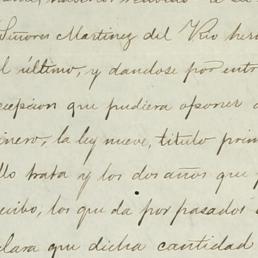 Señores Martinez del Rio her
l último, y dandose por entr
cepcion que pudiera oponer
inero, la ley nueve, título prim
llo trata y los dos años que
cibo, los que da por pasados
clara que dicha cantidad